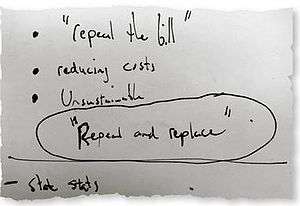 • "repeal the bill"
• reducing costs
• Unsustainable
"Repeal and replace"
- State stats